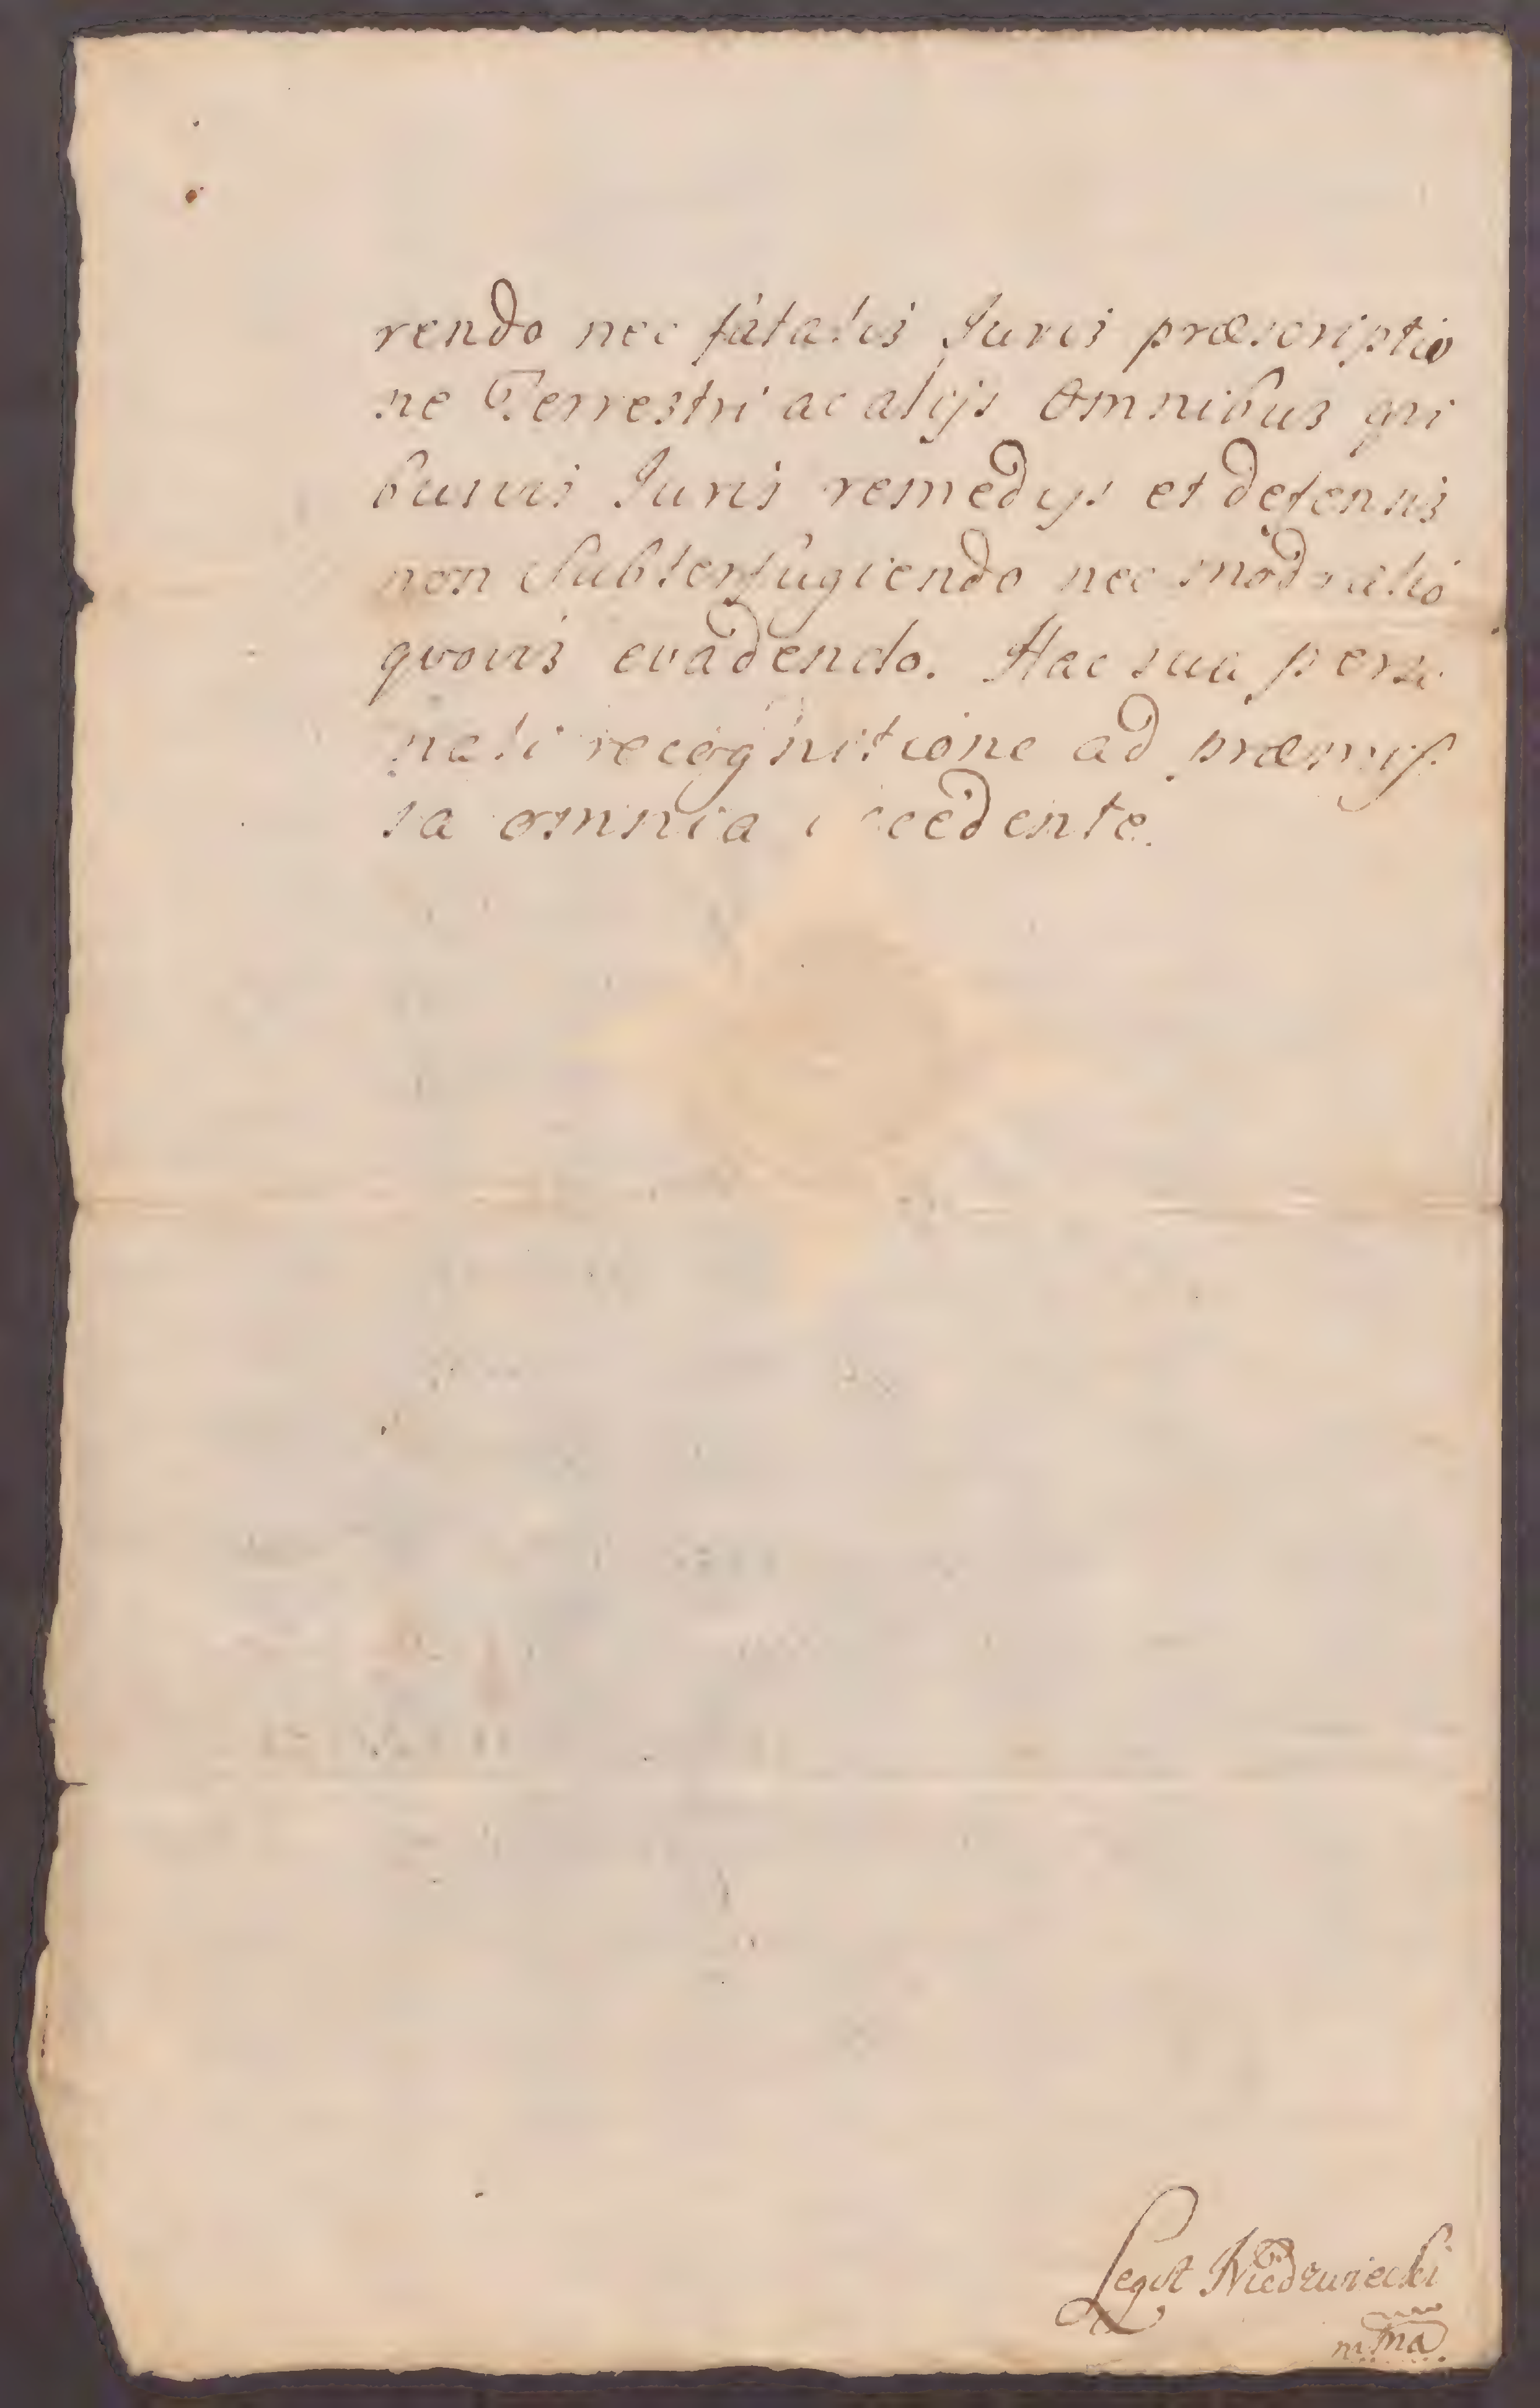 rendo nec fatalis Juris præscriptio
ne Terrestri ac alijs Omnibus qui
busvis Juris remedijs et defensis
non Subterfugiendo nec modo alio
quovis evadendo. Hac sua perso
nali recognitione ad præmis
sa omnia accedente.
Legit Niedzwiecki
mma